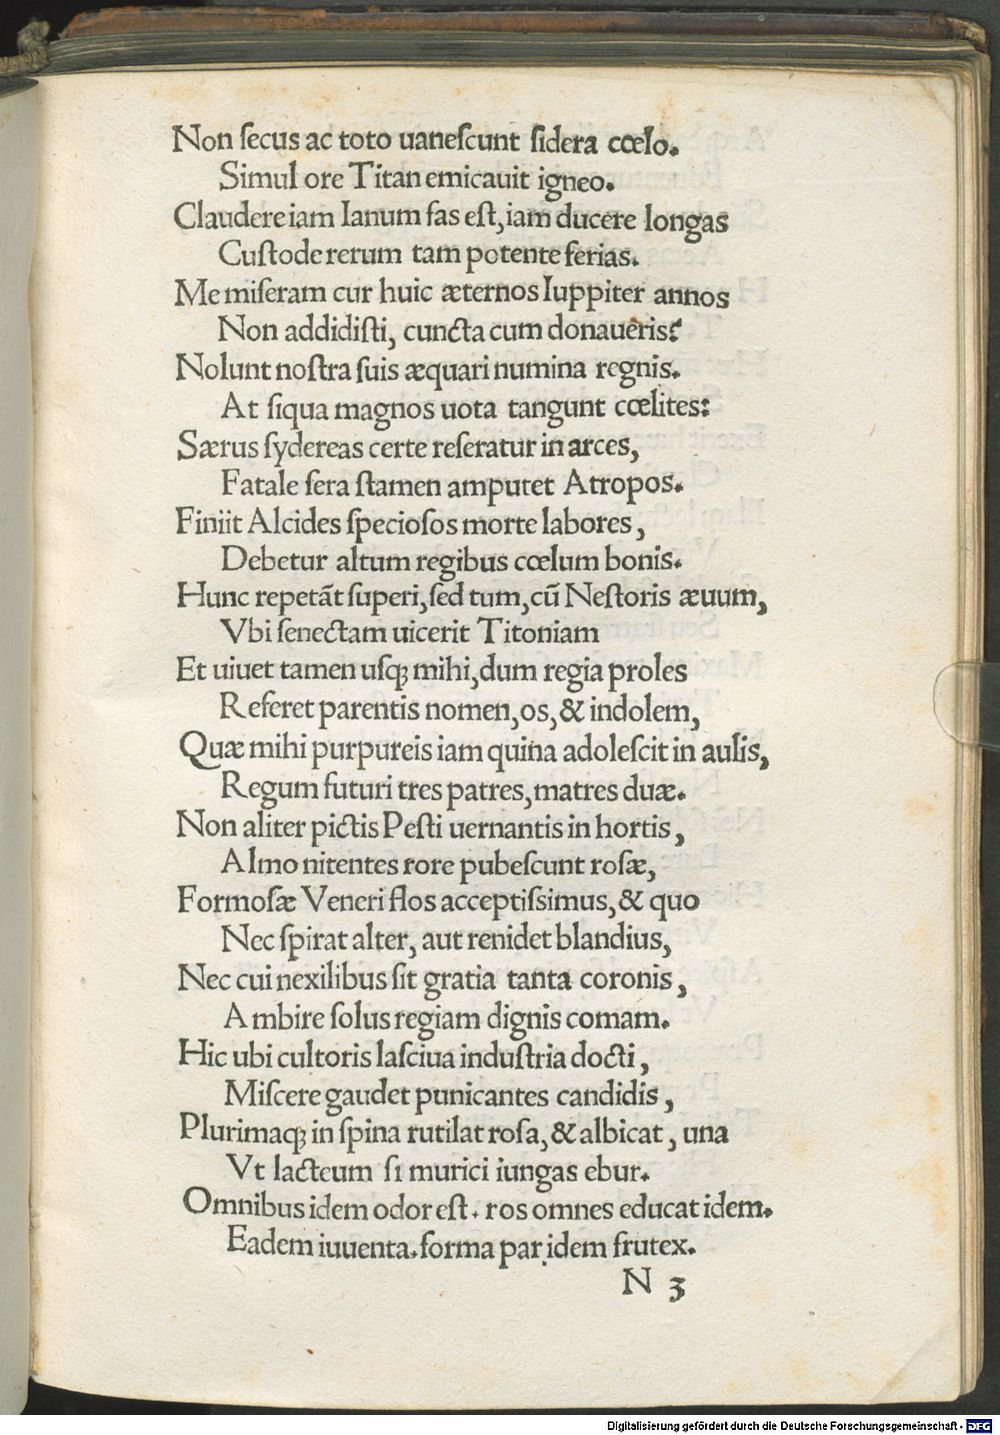 Non ſecus ac toto uaneſcunt ſidera cœlo.
Simul ore Titan emicauit igneo.
Claudere iam Ianum fas eſt, iam ducere longas
Cuſtode rerum tam potente ferias.
Me miſeram cur huic æternos Iuppiter annos
Non addidiſti, cuncta cum donaueris?
Nolunt noſtra ſuis æquari numina regnis.
At ſiqua magnos uota tangunt cœlites:
Særus ſydereas certe reſeratur in arces,
Fatale ſera ſtamen amputet Atropos.
Finiit Alcides ſpecioſos morte labores,
Debetur altum regibus cœlum bonis.
Hunc repetāt ſuperi, ſed tum, cū Neſtoris æuum,
Vbi ſenectam uicerit Titoniam
Et uiuet tamen uſq; mihi, dum regia proles
Referet parentis nomen, os, & indolem,
Quæ mihi purpureis iam quina adoleſcit in aulis,
Regum futuri tres patres, matres duæ.
Non aliter pictis Peſti uernantis in hortis,
Almo nitentes rore pubeſcunt roſæ,
Formoſæ Veneri flos acceptiſſimus, & quo
Nec ſpirat alter, aut renidet blandius,
Nec cui nexilibus ſit gratia tanta coronis,
Ambire ſolus regiam dignis comam.
Hic ubi cultoris laſciua induſtria docti,
Miſcere gaudet punicantes candidis,
Plurimaq; in ſpina rutilat roſa, & albicat, una
Vt lacteum ſi murici iungas ebur.
Omnibus idem odor eſt. ros omnes educat idem.
Eadem iuuenta. forma par. idem frutex.
N 3
Digitalisierung gefördert durch die Deutsche Forschungsgemeinschaft - DFG